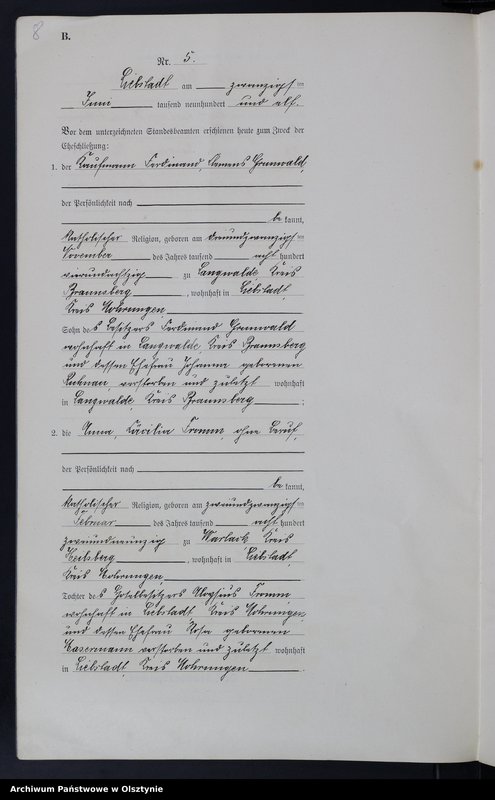 8
B.
Nr. 5.
Liebstadt am zwanzigsten
Juni tausend neunhundert und elf.
Vor dem unterzeichneten Standesbeamten erschienen heute zum Zweck der
Eheschließung:
1. der Kaufmann Ferdinand, Clemens Grunwald,
der Persönlichkeit nach
be kannt,
katholischer Religion, geboren am dreiundzwanzigsten
November des Jahres tausend acht hundert
vierundachtzig zu Langwalde, Kreis
Braunsberg, wohnhaft in Liebstadt,
Kreis Mohrungen,
Sohn des Besitzers Ferdinand Grunwald
wohnhaft in Langwalde, Kreis Braunsberg
und dessen Ehefrau Johanna geborenen
verstorben und zuletzt wohnhaft
in Langwalde, Kreis Braunsberg ;
2. die Anna, Cäcilia Fromm, ohne Beruf,
der Persönlichkeit nach
be kannt,
katholischer Religion, geboren am zweiundzwanzigsten
Februar des Jahres tausend acht hundert
zweiundneunzig zu Warlack, Kreis
Heilsberg, wohnhaft in Liebstadt,
Kreis Mohrungen,
Tochter des Hotelbesitzers Aloysius Fromm
wohnhaft in Liebstadt, Kreis Mohrungen,
und dessen Ehefrau Rosa geborenen
verstorben und zuletzt wohnhaft
in Liebstadt, Kreis Mohrungen.
Archiwum Państwowe w Olsztynie